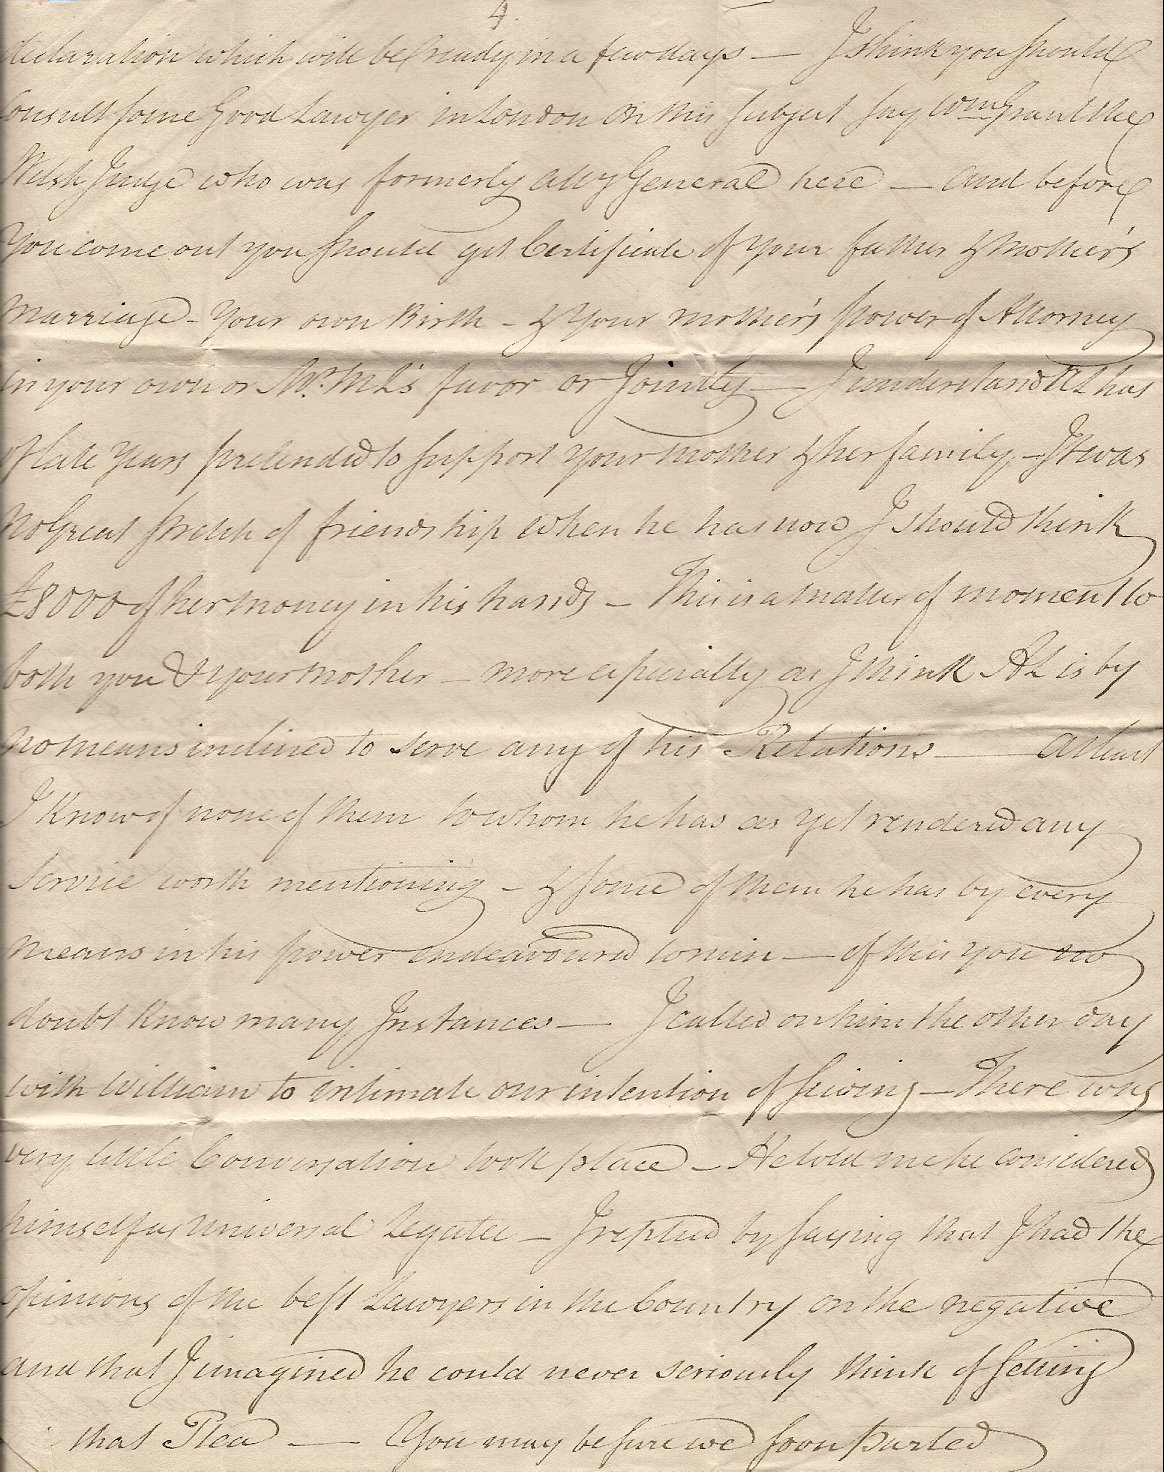 4
declaration which will be ready in a few days — I think you should
Consult some Good Lawyer in London on this subject say Wm Grant the
Welsh Judge who was formerly Atty General here — and before
You come out you should get Certificate of your father & mother's
Marriage - Your own Birth - & Your mother's power of Attorney
in your own or Mr. ML's favor or Jointly — I understand AL has
of late Years pretended to support your mother & her family, - It was
No Great stretch of friendship when he has now I should think
£8000 of her money in his hands — This is a matter of moment to
both you & Your mother — more especially as I think AL is by
no means inclined to serve any of his Relations — at least
I Know of none of them to whom he has as yet rendered any
Service worth mentioning - & some of them he has by every
means in his power endeavoured to ruin — of this you no
doubt Know many Instances — I called on him the other day
with William to intimate our intention of suing — There was
very little Conversation took place — He told me he considered
himself as Universal Legatee — I replied by saying that I had the
opinions of the best Lawyers in the Country on the negative
and that I imagined he could never seriously think of setting
that Plea — You may be sure we soon parted